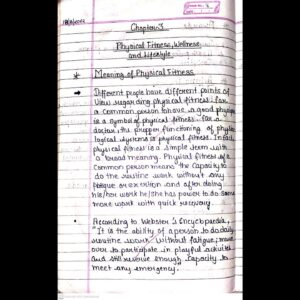 Chapter-3
Physical Fitness, Wellness
and Lifestyle
* Meaning of Physical Fitness
→ Different people have different points of
view regarding physical fitness. For
a common person to have a good physique
is a symbol of physical fitness. For a
doctor, the propper functioning of physio
logical systems is physical fitness. In fact
physical fitness is a simple term with
a broad meaning. Physical fitness of a
Common person means the capacity to
do the routine work without any
fatigue or exertion and after doing
his/her work he/she has power to do some
more work with quick recovery.
According to Webster's Encyclopaedia,
"It is the ability of a person to do daily
routine work without fatigue, more
over to participate in playful activities
and still reserve enough capacity to
meet any emergency."